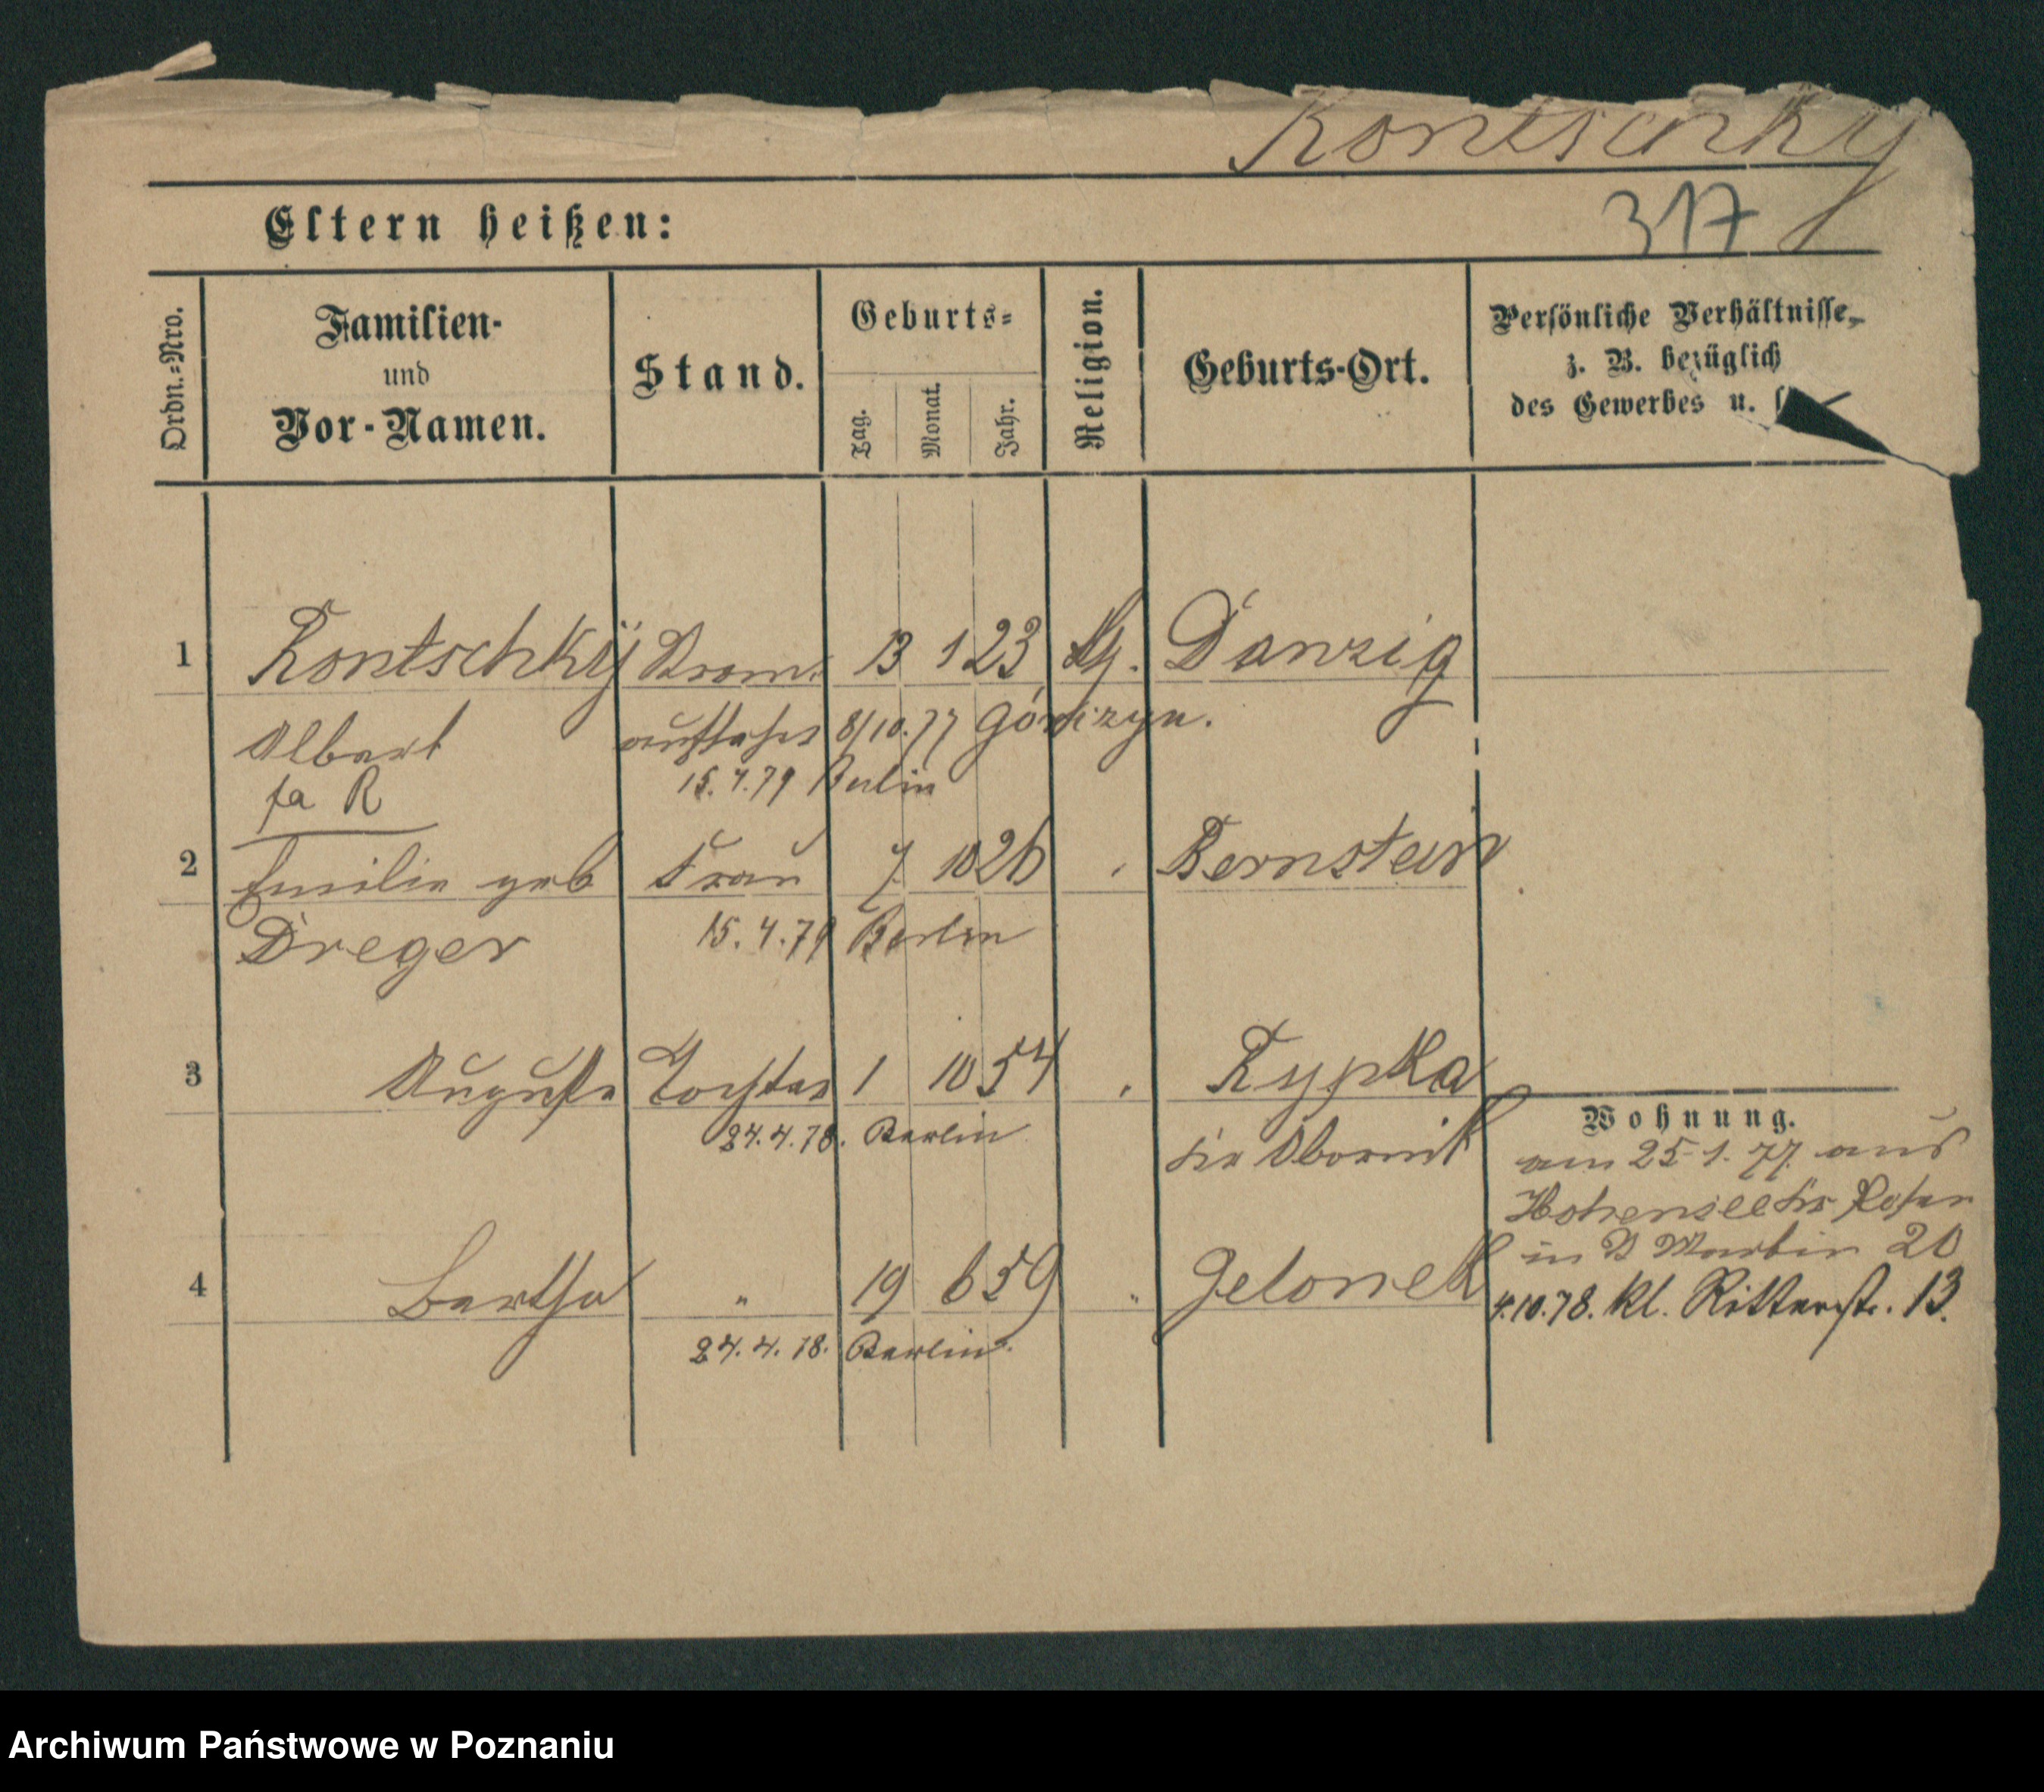 Kontschky
317
Eltern heißen:
Ordn.=Nro.
Familien-
und
Vor-Namen.
Stand.
Geburts=
Tag.
Monat.
Jahr.
Religion.
Geburts-Ort.
Persönliche Verhältnisse,
z. B. bezüglich
des Gewerbes u.
1 Kontschky 13 1 23 Danzig
Albert 8/10.77 Górczyn.
15.4.79 Berlin
2 Emilie geb Frau 7 10 26 Bernstein
Dreger 15.4.79 Berlin
3 Auguste Tochter 1 10 54 Rypka
24.4.78. Berlin Kr Obornik
4 Bertha " 19 6 59 " Jelonek
24.4.78. Berlin.
Wohnung.
am 25.1.77. aus
Hohensee Kr Posen
in St Martin 20
4.10.78. kl. Ritterstr. 13.
Archiwum Państwowe w Poznaniu